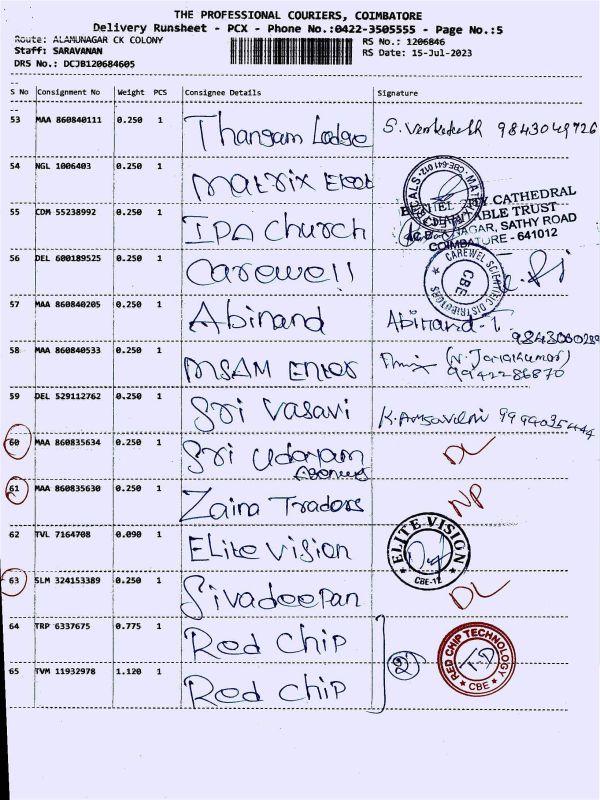 THE PROFESSIONAL COURIERS, COIMBATORE
Delivery Runsheet - PCX - Phone No.:0422-3505555 - Page No.:5
Route: ALAMUNAGAR CK COLONY
RS No.: 1206846
Staff: SARAVANAN
RS Date: 15-Jul-2023
DRS No.: DCJB120684605
S No Consignment No Weight PCS Consignee Details Signature
53 MAA 860840111 0.250 1 Thangam Lodge S. Venkatesh 9843049726
54 NGL 1006403 0.250 1 Matrix Elect
55 CDM 55238992 0.250 1 IPA Church
CITY CATHEDRAL
CHARITABLE TRUST
NAGAR, SATHY ROAD
COIMBATORE - 641012
56 DEL 600189525 0.250 1 Carewell
CAREWEL SCIENTIFIC DISTRIBUTORS
CBE
57 MAA 860840205 0.250 1 Abinand Abinand-T
58 MAA 860840533 0.250 1 MSAM Enter
9942286870
59 DEL 529112762 0.250 1 Sri Vasavi
60 MAA 860835634 0.250 1 Sri DL
61 MAA 860835630 0.250 1 Zaina Tradors NP
62 TVL 7164708 0.090 1 Elite Vision
ELITE VISION
CBE-12
63 SLM 324153389 0.250 1 Sivadeepan DL
64 TRP 6337675 0.775 1 Red Chip
2
RED CHIP TECHNOLOGY
CBE
65 TVM 11932978 1.120 1 Red Chip